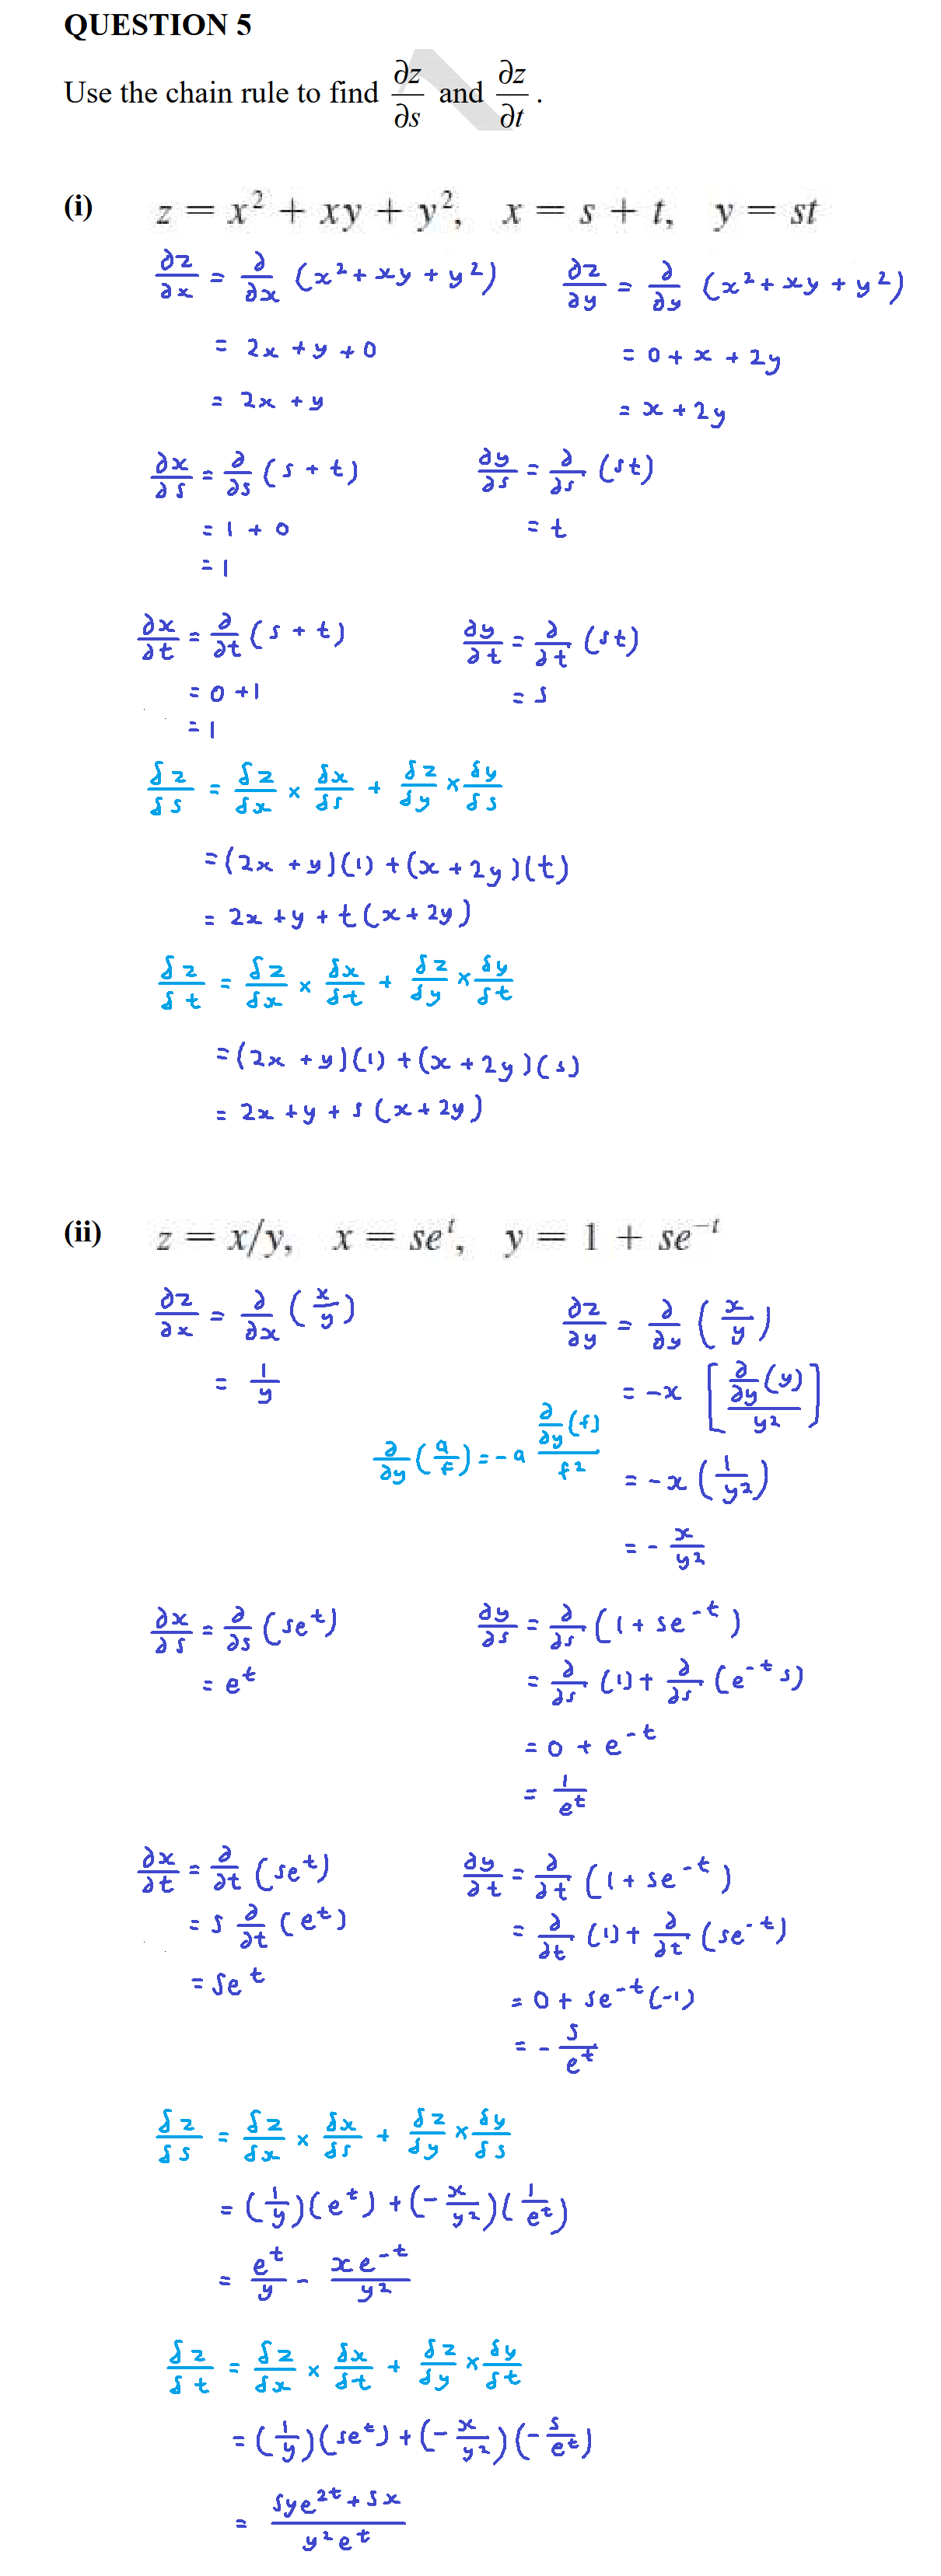 QUESTION 5
Use the chain rule to find ∂z/∂s and ∂z/∂t .
(i) z = x² + xy + y², x = s + t, y = st
∂z/∂x = ∂/∂x (x² + xy + y²) ∂z/∂y = ∂/∂y (x² + xy + y²)
= 2x + y + 0 = 0 + x + 2y
= 2x + y = x + 2y
∂x/∂s = ∂/∂s (s + t) ∂y/∂s = ∂/∂s (st)
= 1 + 0 = t
= 1
∂x/∂t = ∂/∂t (s + t) ∂y/∂t = ∂/∂t (st)
= 0 + 1 = s
= 1
δz/δs = δz/δx × δx/δs + δz/δy × δy/δs
= (2x + y)(1) + (x + 2y)(t)
= 2x + y + t(x + 2y)
δz/δt = δz/δx × δx/δt + δz/δy × δy/δt
= (2x + y)(1) + (x + 2y)(s)
= 2x + y + s(x + 2y)
(ii) z = x/y, x = seᵗ, y = 1 + se⁻ᵗ
∂z/∂x = ∂/∂x (x/y) ∂z/∂y = ∂/∂y (x/y)
= 1/y = -x [∂/∂y (y) / y²]
∂/∂y (a/f) = -a ∂/∂y (f) / f² = -x (1/y²)
= - x/y²
∂x/∂s = ∂/∂s (seᵗ) ∂y/∂s = ∂/∂s (1 + se⁻ᵗ)
= eᵗ = ∂/∂s (1) + ∂/∂s (e⁻ᵗ s)
= 0 + e⁻ᵗ
= 1/eᵗ
∂x/∂t = ∂/∂t (seᵗ) ∂y/∂t = ∂/∂t (1 + se⁻ᵗ)
= s ∂/∂t (eᵗ) = ∂/∂t (1) + ∂/∂t (se⁻ᵗ)
= seᵗ = 0 + se⁻ᵗ(-1)
= - s/eᵗ
δz/δs = δz/δx × δx/δs + δz/δy × δy/δs
= (1/y)(eᵗ) + (- x/y²)(1/eᵗ)
= eᵗ/y - xe⁻ᵗ/y²
δz/δt = δz/δx × δx/δt + δz/δy × δy/δt
= (1/y)(seᵗ) + (- x/y²)(- s/eᵗ)
= (sye²ᵗ + sx)/(y²eᵗ)